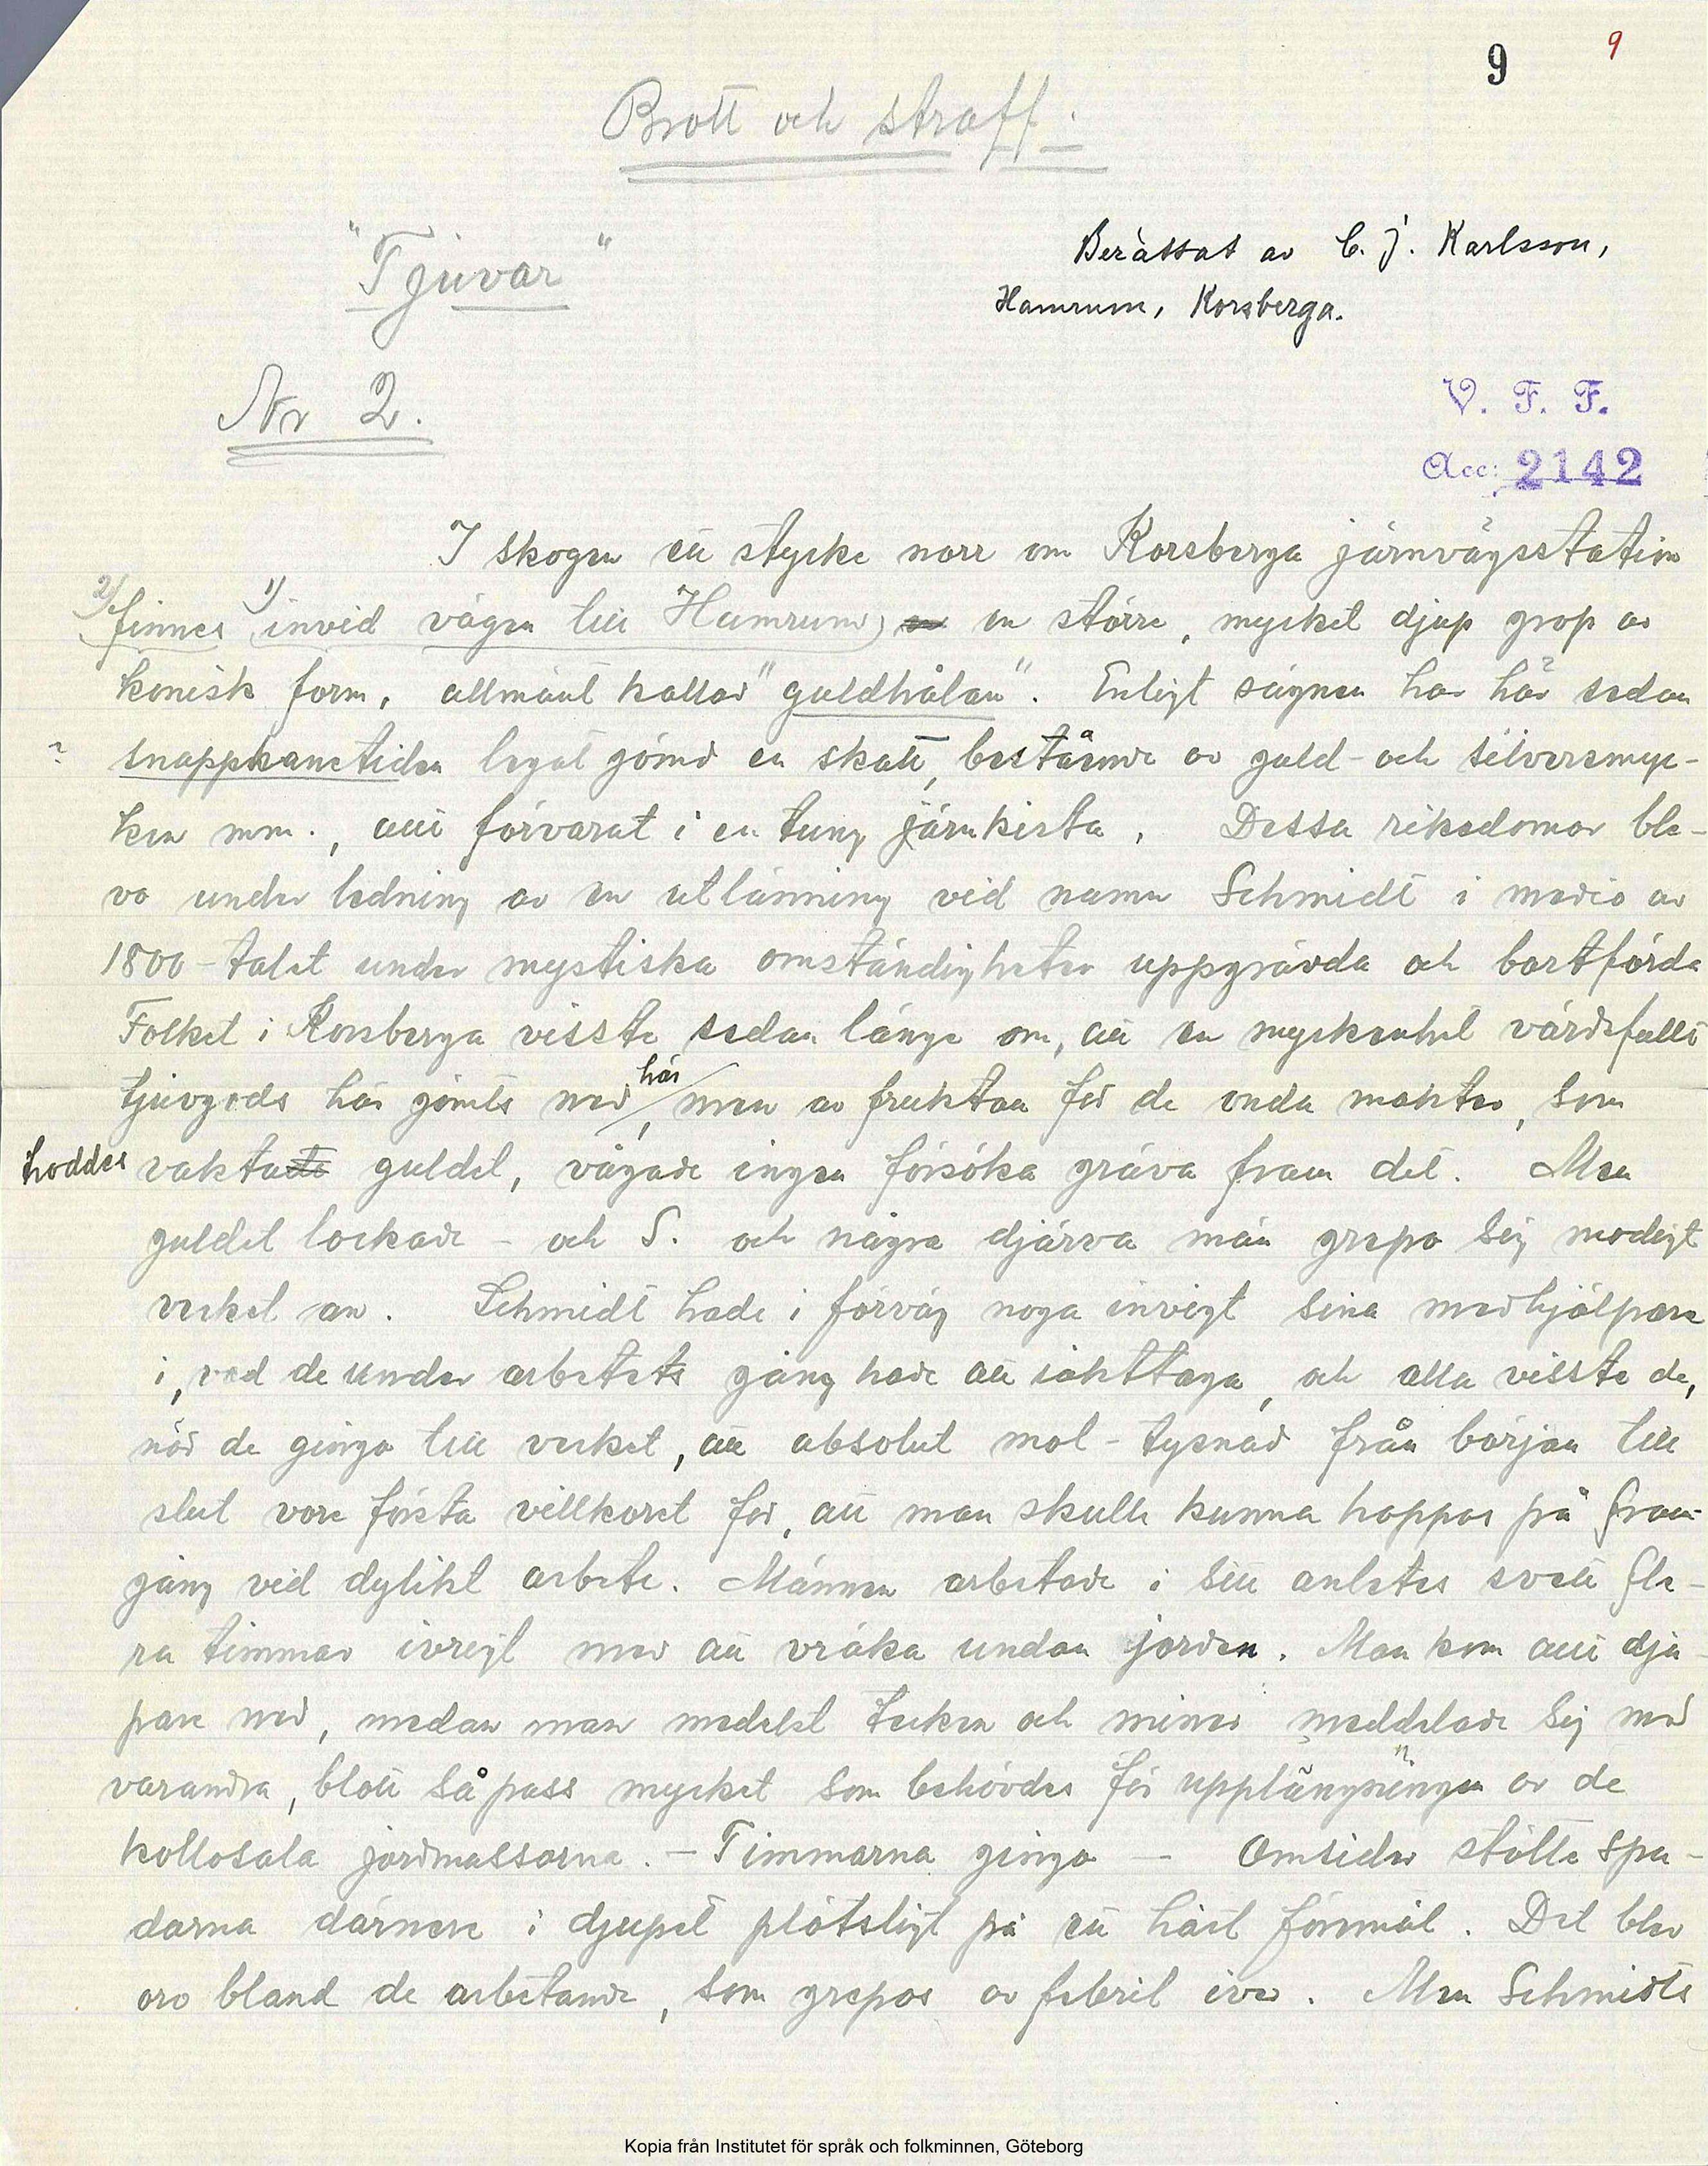 9 9
Brott och straff.
"Tjuvar"
Berättat av C. J. Karlsson,
Hamrum, Korsberga.
Nr 2.
V. F. F.
Acc: 2142
I skogen ett stycke norr om Korsberga järnvägsstation
2) finnes 1) invid vägen till Hamrum) en större, mycket djup grop av
konisk form, allmänt kallad "guldhålan". Enligt sägnen har här sedan
? snapphanetiden legat gömd en skatt, bestående av guld- och silversmyc-
ken mm., allt förvarat i en tung järnkista. Dessa rikedomar ble-
vo under ledning av en utlänning vid namn Schmidt i medio av
1800-talet under mystiska omständigheter uppgrävda och bortförda
Folket i Korsberga visste sedan länge om, att en myckenhet värdefullt
här
tjuvgods här gömts ned, men av fruktan för de onda makter, som
troddes vaktade guldet, vågade ingen försöka gräva fram det. Men
guldet lockade - och S. och några djärva män grepo sig modigt
verket an. Schmidt hade i förväg noga invigt sina medhjälpare
i, vad de under arbetets gång hade att iakttaga, och alla visste de,
när de gingo till verket, att absolut mol-tystnad från början till
slut vore första villkoret för, att man skulle kunna hoppas på fram-
gång vid dylikt arbete. Männen arbetade i sitt anletes svett fle-
ra timmar ivrigt med att vräka undan jorden. Man kom allt dju-
pare ned, medan man medelst tecken och miner meddelade sig med
varandra, blott så pass mycket som behövdes för upplängningen av de
kollosala jordmassorna. - Timmarna gingo - Omsider stötte spa-
darna därnere i djupet plötsligt på ett hårt föremål. Det blev
oro bland de arbetande, som grepos av febril iver. Men Schmidts
Kopia från Institutet för språk och folkminnen, Göteborg